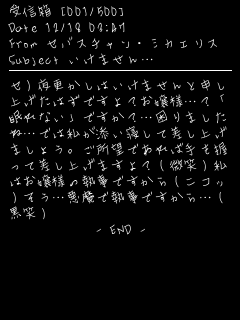 受信箱 [001/500]
Date 12/18 03:27
From セバスチャン・ミカエリス
Subject いけません…
せ）夜更かしはいけませんと申し
上げたはずですよ？お嬢様…？「
眠れない」ですか？…困りました
ね…では私が添い寝して差し上げ
ましょう。ご所望であれば手を握
って差し上げますよ？（微笑）私
はお嬢様の執事ですから（ニコッ
）そう…悪魔で執事ですから…（
黒笑）
- END -